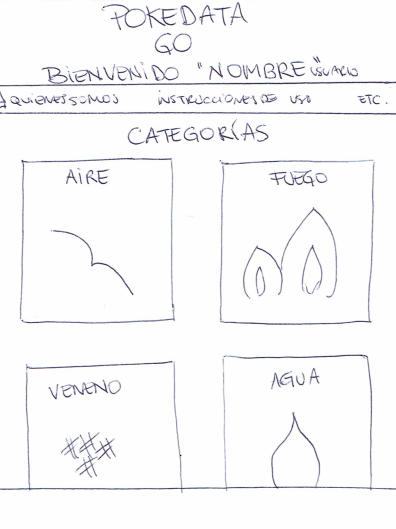 POKEDATA
GO
BIENVENIDO "NOMBRE USUARIO"
¿QUIENES SOMOS INSTRUCCIONES DE USO ETC.
CATEGORÍAS
AIRE FUEGO
VENENO AGUA